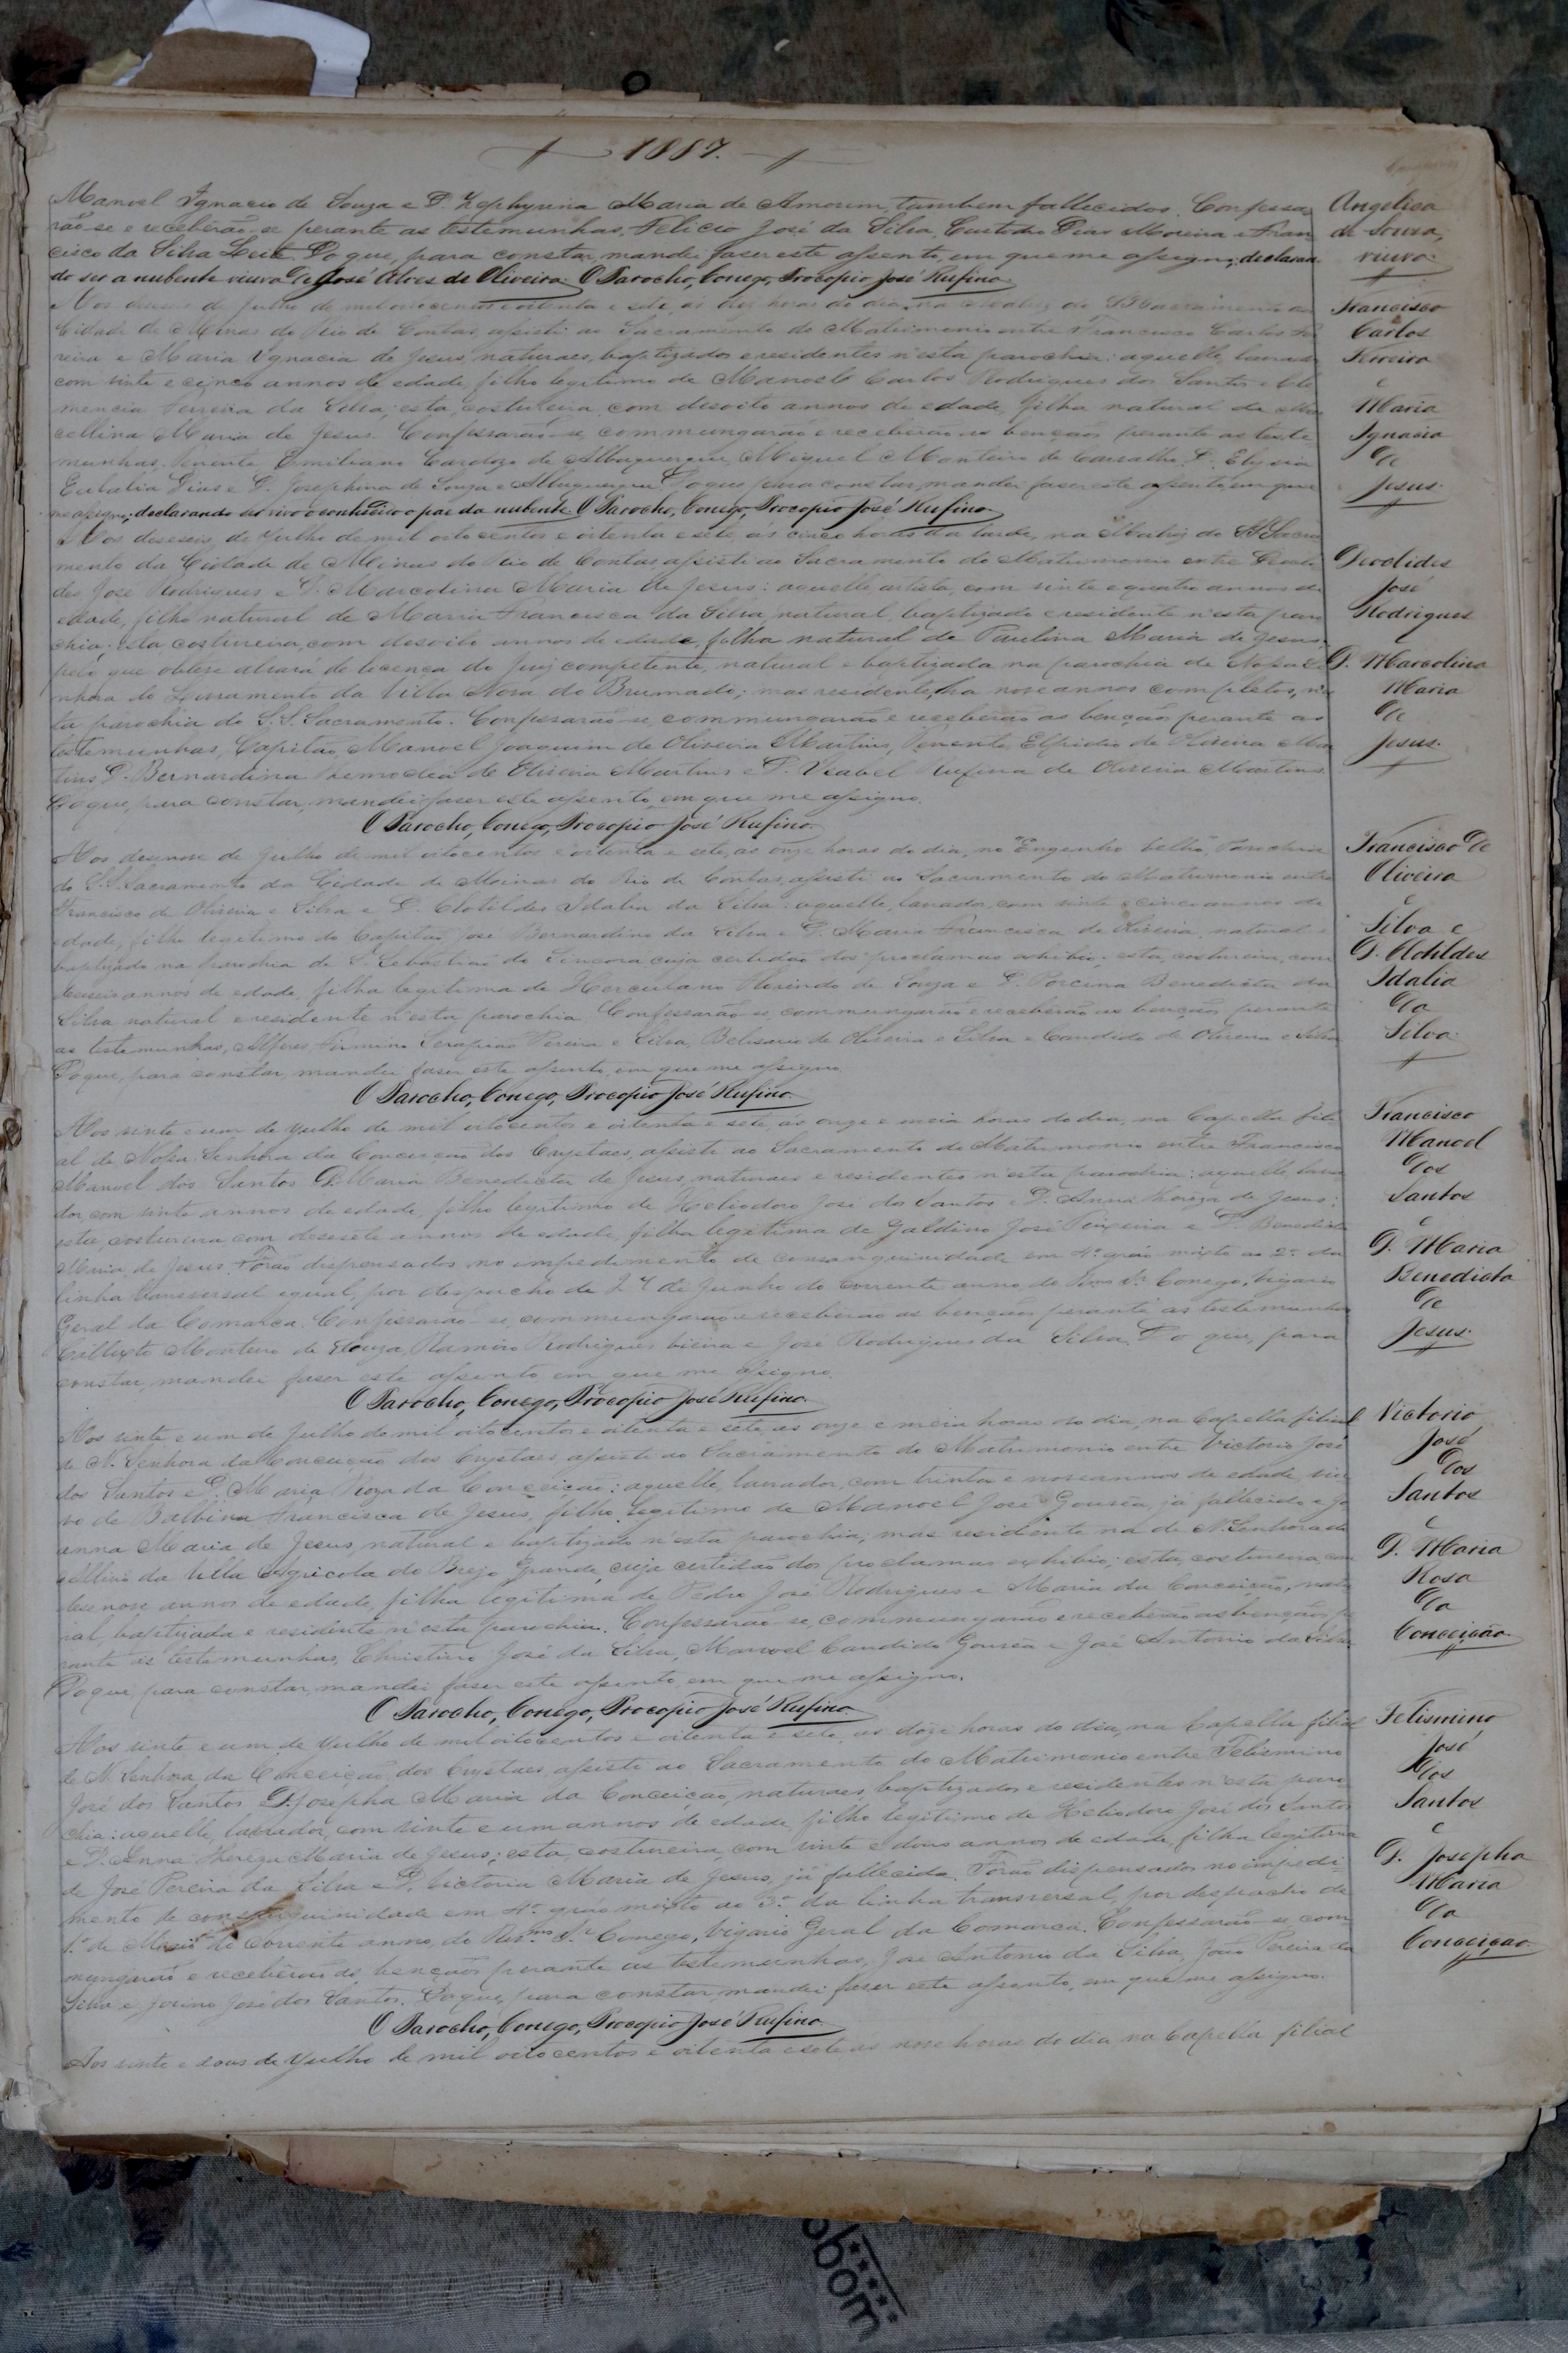 1887.
Manoel Ignacio de Souza e D. Zephyrina Maria de Amorim, tambem fallecidos. Confessa
rão-se e receberão-se perante as testemunhas, Felicio José da Silva, Custodio Dias Moreira e Fran
cisco da Silva Leite. Do que, para constar, mandei faser este assento, em que me assigno; declaran
do ser a nubente viuva de José Alves de Oliveira. O Parocho, Conego, Procopio José Rufino.
Angelica
de Souza,
viuva.
de Julho de mil oitocentos e oitenta e sete, ás dez horas do dia, na Matriz do SS. Sacramento da
Cidade de Minas do Rio de Contas, assisti ao Sacramento do Matrimonio entre Francisco Carlos Fer
reira e Maria Ignacia de Jesus, naturaes, baptizados e residentes n'esta parochia: aquelle, lavrador
com vinte e cinco annos de edade, filho legitimo de Manoel Carlos Rodrigues dos Santos e Cle
mencia Ferreira da Silva; esta, costureira, com desoito annos de edade, filha natural de Mar
cellina Maria de Jesus. Confessarão-se, commungarão e receberão as bençãos perante as teste
munhas, Tenente Emiliano Cardozo de Albuquerque, Miguel Monteiro de Carvalho, D. Elysia
Eulalia Dias e D. Josephina de Souza e Albuquerque. Do que, para constar, mandei faser este assento, em que
me assigno; declarando ser vivo e conhecido o pae da nubente. O Parocho, Conego, Procopio José Rufino.
Francisco
Carlos
Ferreira
e
Maria
Ignacia
de
Jesus.
Aos deseseis de Julho de mil oitocentos e oitenta e sete, ás cinco horas da tarde, na Matriz do SS. Sacra
mento da Cidade de Minas do Rio de Contas, assisti ao Sacramento do Matrimonio entre Deocli
des José Rodrigues e D. Marcolina Maria de Jesus: aquelle, artista, com vinte e quatro annos de
edade, filho natural de Maria Francisca da Silva, natural, baptizado e residente n'esta paro
chia; esta, costureira, com desoito annos de edade, filha natural de Paulina Maria de Jesus,
pelo que obteve alvará de licença do Juiz competente, natural e baptizada na parochia de Nossa Se
nhora do Livramento da Villa Nova do Brumado; mas residente, ha nove annos completos, n'es
ta parochia do S.S. Sacramento. Confessarão-se, commungarão e receberão as bençãos perante as
testemunhas, Capitão Manoel Joaquim de Oliveira Martins, Tenente Elpidio de Oliveira Mar
tins, D. Bernardina de Oliveira Martins e D. Isabel Rufina de Oliveira Martins.
Do que, para constar, mandei faser este assento, em que me assigno.
O Parocho, Conego, Procopio José Rufino.
Deoclides
José
Rodrigues
e
D. Marcolina
Maria
de
Jesus.
Aos desenove de Julho de mil oitocentos e oitenta e sete, as onze horas do dia, no "Engenho Velho", Parochia
do S.S. Sacramento da Cidade de Minas do Rio de Contas, assisti ao Sacramento do Matrimonio entre
Francisco de Oliveira e Silva e D. Clotildes Idalia da Silva: aquelle, lavrador, com vinte e cinco annos de
edade, filho legitimo do Capitão José Bernardino da Silva e D. Maria Francisca de Oliveira, natural e
baptizado na parochia de S. Sebastião do Sincorá, cuja certidão dos proclamas exhibio; esta, costureira, com
annos de edade, filha legitima de Herculano Florindo de Souza e D. Porcina Benedicta da
Silva, natural e residente n'esta parochia. Confessarão-se, commungarão e receberão as bençãos perante
as testemunhas, Alferes Firmino Serapião Pereira e Silva, Belisario de Oliveira e Silva e Candido de Oliveira e Silva.
Do que, para constar, mandei faser este assento, em que me assigno.
O Parocho, Conego, Procopio José Rufino.
Francisco de
Oliveira
e
Silva e
D. Clotildes
Idalia
da
Silva.
Aos vinte e um de Julho de mil oitocentos e oitenta e sete, ás onze e meia horas do dia, na Capella fili
al de Nossa Senhora da Conceição dos Crystaes, assisti ao Sacramento do Matrimonio entre Francisco
Manoel dos Santos e D. Maria Benedicta de Jesus, naturaes e residentes n'esta parochia: aquelle, lavra
dor, com vinte annos de edade, filho legitimo de Heliodoro José dos Santos e D. Anna Thereza de Jesus;
esta, costureira, com desesete annos de edade, filha legitima de Galdino José Teixeira e D. Benedicta
Maria de Jesus. Forão dispensados no impedimento de consanguinidade em 4º grão mixto ao 2º da
linha transversal egual, por despacho de 27 de Junho do corrente anno, do Revmo Sr. Conego, Vigario
Geral da Comarca. Confessarão-se, commungarão e receberão as bençãos perante as testemunhas
Callixto Monteiro de Souza, Ramiro Rodrigues Vieira e José Rodrigues da Silva. Do que, para
constar, mandei faser este assento em que me assigno.
O Parocho, Conego, Procopio José Rufino.
Francisco
Manoel
dos
Santos
e
D. Maria
Benedicta
de
Jesus.
Aos vinte e um de Julho de mil oitocentos e oitenta e sete, as onze e meia horas do dia, na Capella filial
de N. Senhora da Conceição dos Crystaes, assisti ao Sacramento do Matrimonio entre Victorio José
dos Santos e D. Maria Roza da Conceição: aquelle, lavrador, com trinta e nove annos de edade, viu
vo de Balbina Francisca de Jesus, filho legitimo de Manoel José Gouvêa, já fallecido e Jo
anna Maria de Jesus, natural e baptizado n'esta parochia; mas residente na de N. Senhora do
Allivio da Villa Agricola do Brejo Grande, cuja certidão dos proclamas exhibio; esta, costureira, com
desenove annos de edade, filha legitima de Pedro José Rodrigues e Maria da Conceição, natu
ral, baptizada e residente n'esta parochia. Confessarão-se, commungarão e receberão as bençãos pe
rante as testemunhas, Christino José da Silva, Manoel Candido Gouvêa e José Antonio da Silva.
Do que, para constar, mandei faser este assento em que me assigno.
O Parocho, Conego, Procopio José Rufino.
Victorio
José
dos
Santos
e
D. Maria
Rosa
da
Conceição.
Aos vinte e um de Julho de mil oitocentos e oitenta e sete, as doze horas do dia, na Capella filial
de N. Senhora da Conceição dos Crystaes, assisti ao Sacramento do Matrimonio entre Felismino
José dos Santos e D. Josepha Maria da Conceição, naturaes, baptizados e residentes n'esta paro
chia: aquelle, lavrador, com vinte e um annos de edade, filho legitimo de Heliodoro José dos Santos
e D. Anna Thereza Maria de Jesus; esta, costureira, com vinte e dous annos de edade, filha legitima
de José Pereira da Silva e D. Victoria Maria de Jesus, já fallecida. Forão dispensados no impedi-
mento de consanguinidade em 4º grao mixto ao 3º da linha transversal, por despacho de
1º de do corrente anno, do Revmo Sr. Conego, Vigario Geral da Comarca. Confessarão-se, com
mungarão e receberão as bençãos perante as testemunhas, José Antonio da Silva, João Pereira da
Silva e Jovino José dos Santos. Do que, para constar, mandei faser este assento, em que me assigno.
O Parocho, Conego, Procopio José Rufino.
Felismino
José
dos
Santos
e
D. Josepha
Maria
da
Conceição.
Aos vinte e dous de Julho de mil oitocentos e oitenta e sete as nove horas do dia na Capella filial
obom